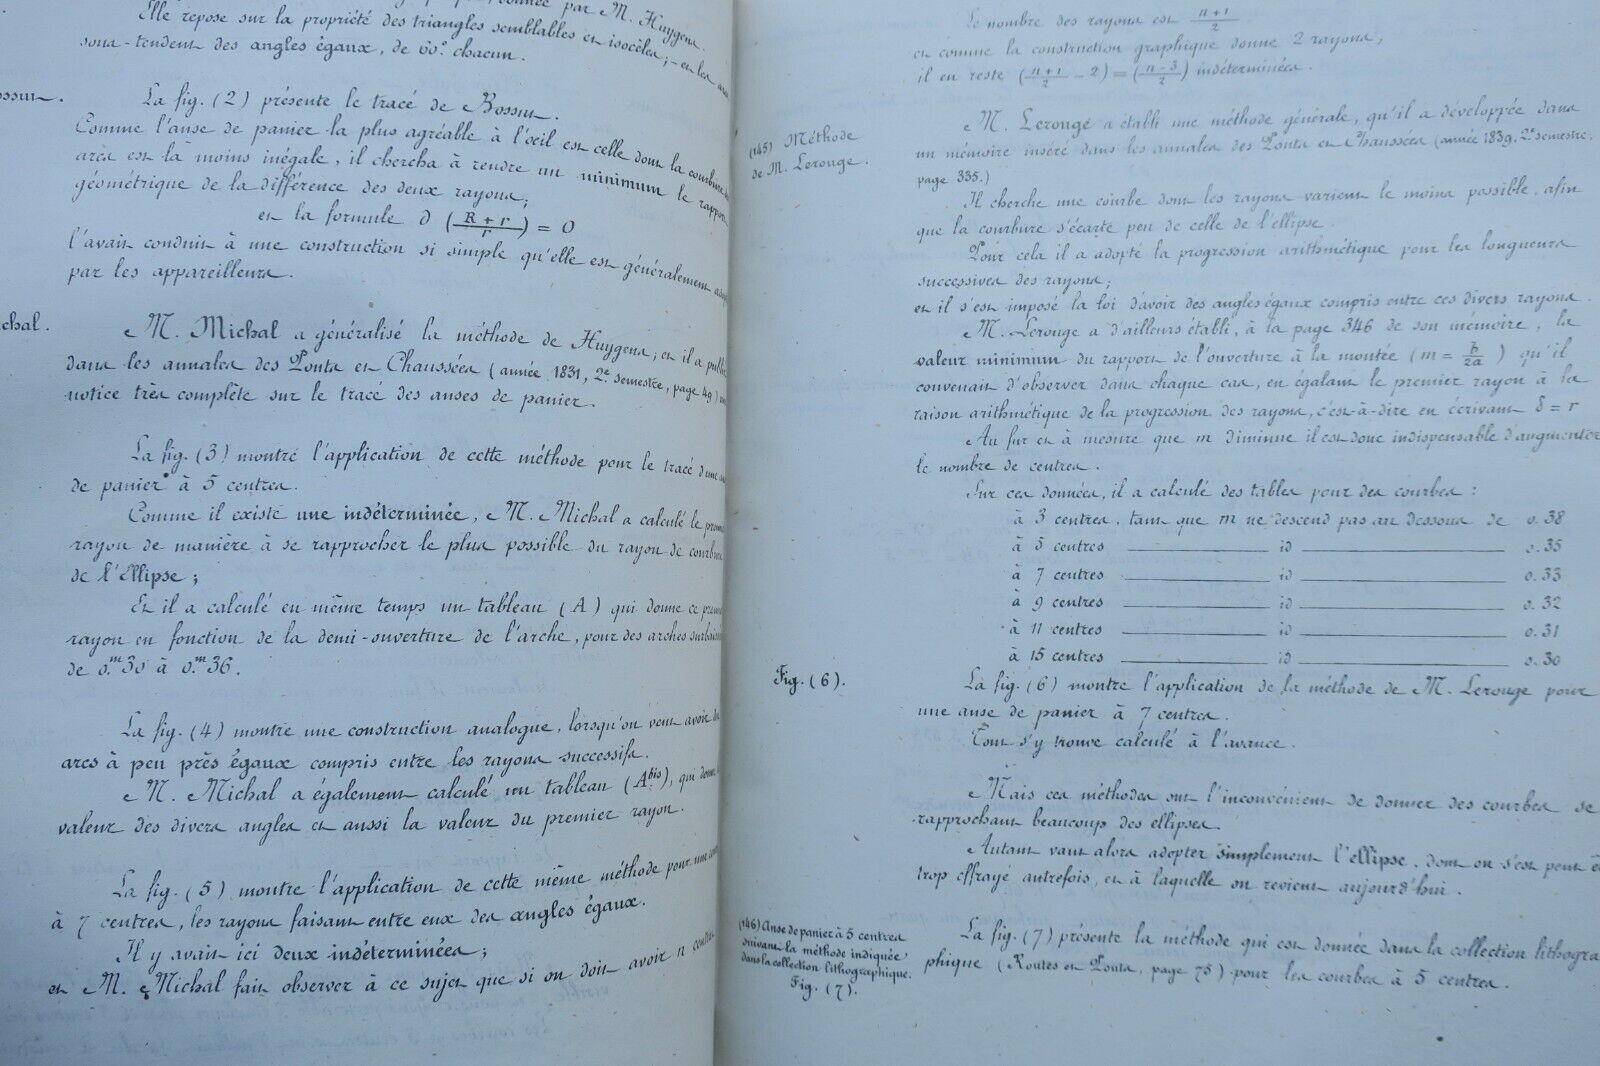 donnée par M. Huygens.
Elle repose sur la propriété des triangles semblables et isocèles; et les
sous-tendent des angles égaux, de 60° chacun.
La fig. (2) présente le tracé de Bossut.
Comme l'anse de panier la plus agréable à l'œil est celle dont la courbure des
arcs est la moins inégale, il chercha à rendre un minimum le rapport
géométrique de la différence des deux rayons;
et la formule d (R + r / r) = 0
l'avait conduit à une construction si simple qu'elle est généralement
par les appareilleurs.
chal.
M. Michal a généralisé la méthode de Huygens; et il a publié
dans les annales des Ponts et Chaussées (année 1831, 2e semestre, page 49)
notice très complète sur le tracé des anses de panier.
La fig. (3) montre l'application de cette méthode pour le tracé d'une
de panier à 5 centres.
Comme il existe une indéterminée, M. Michal a calculé le premier
rayon de manière à se rapprocher le plus possible du rayon de courbure
de l'Ellipse;
Et il a calculé en même temps un tableau (A) qui donne ce premier
rayon en fonction de la demi-ouverture de l'arche, pour des arches surbaissées
de 0.m30 à 0.m36.
La fig. (4) montre une construction analogue, lorsqu'on veut avoir des
arcs à peu près égaux compris entre les rayons successifs.
M. Michal a également calculé un tableau (Abis), qui donne la
valeur des divers angles et aussi la valeur du premier rayon.
La fig. (5) montre l'application de cette même méthode pour une
à 7 centres, les rayons faisant entre eux des angles égaux.
Il y avait ici deux indéterminées;
et M. Michal fait observer à ce sujet que si on doit avoir n centres
Le nombre des rayons est n+1/2
et comme la construction graphique donne 2 rayons,
il en reste (n+1/2 - 2) = (n-3/2) indéterminées.
(145) Méthode
de M. Lerouge.
M. Lerouge a établi une méthode générale, qu'il a développée dans
un mémoire inséré dans les annales des Ponts et Chaussées (année 1839, 2e semestre,
page 335.)
Il cherche une courbe dont les rayons varient le moins possible, afin
que la courbure s'écarte peu de celle de l'ellipse.
Pour cela il a adopté la progression arithmétique pour les longueurs
successives des rayons;
et il s'est imposé la loi d'avoir des angles égaux compris entre ces divers rayons.
M. Lerouge a d'ailleurs établi, à la page 346 de son mémoire, la
valeur minimum du rapport de l'ouverture à la montée (m = b/2a) qu'il
convenait d'observer dans chaque cas, en égalant le premier rayon à la
raison arithmétique de la progression des rayons, c'est-à-dire en écrivant δ = r
Au fur et à mesure que m diminue il est donc indispensable d'augmenter
le nombre de centres.
Sur ces données, il a calculé des tables pour des courbes :
à 3 centres, tant que m ne descend pas au dessous de 0.38
à 5 centres id 0.35
à 7 centres id 0.33
à 9 centres id 0.32
à 11 centres id 0.31
à 15 centres id 0.30
Fig. (6).
La fig. (6) montre l'application de la méthode de M. Lerouge pour
une anse de panier à 7 centres.
Tout s'y trouve calculé à l'avance.
Mais ces méthodes ont l'inconvénient de donner des courbes se
rapprochant beaucoup des ellipses.
Autant vaut alors adopter simplement l'ellipse, dont on s'est peut
trop effrayé autrefois, et à laquelle on revient aujourd'hui.
(146) Anse de panier à 5 centres
suivant la méthode indiquée
dans la collection lithographique.
Fig. (7).
La fig. (7) présente la méthode qui est donnée dans la collection lithogra-
phique (Routes et Ponts, page 75) pour les courbes à 5 centres.